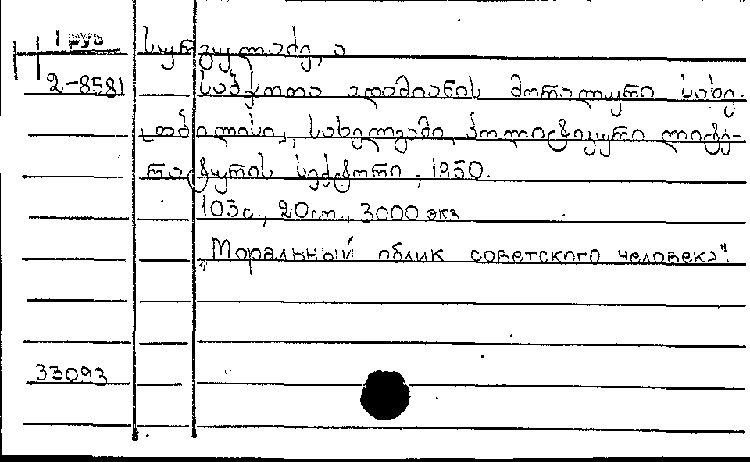 1 руб
2-8581
საბჭოთა ადამიანის მორალური სახე.
თბილისი, სახელგამი, პოლიტიკური ლიტე-
რატურის სექტორი, 1950.
103с., 20cm., 3000 экз
„Моральный облик советского человека".
33093